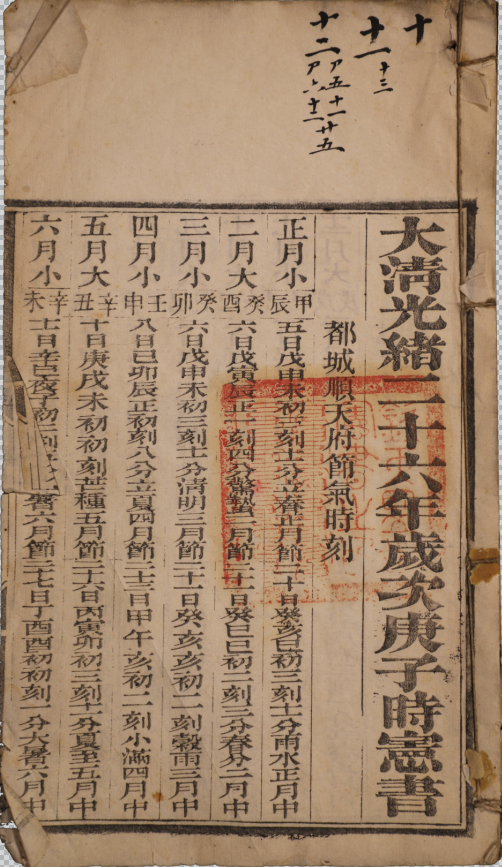 十
十一 十三
十二 五十一廿五
六十二
大清光緒二十六年歲次庚子時憲書
都城順天府節氣時刻
正月小 甲辰 五日戊申未初刻十分立春正月節二十日癸亥巳初三刻十分雨水正月中
二月大 癸酉 六日戊寅辰正一刻四分驚蟄二月節二十一日癸巳巳初二刻二分春分二月中
三月小 癸卯 六日戊申未初三刻十一分清明三月節二十一日癸亥亥初一刻穀雨三月中
四月小 壬申 八日己卯辰正初刻八分立夏四月節二十三日甲午亥初二刻小滿四月中
五月大 辛丑 十日庚戌未初初刻芒種五月節二十六日丙寅卯初三刻十分夏至五月中
六月小 辛未 十一日辛巳夜子初三刻暑六月節二十七日丁酉酉初初刻一分大暑六月中